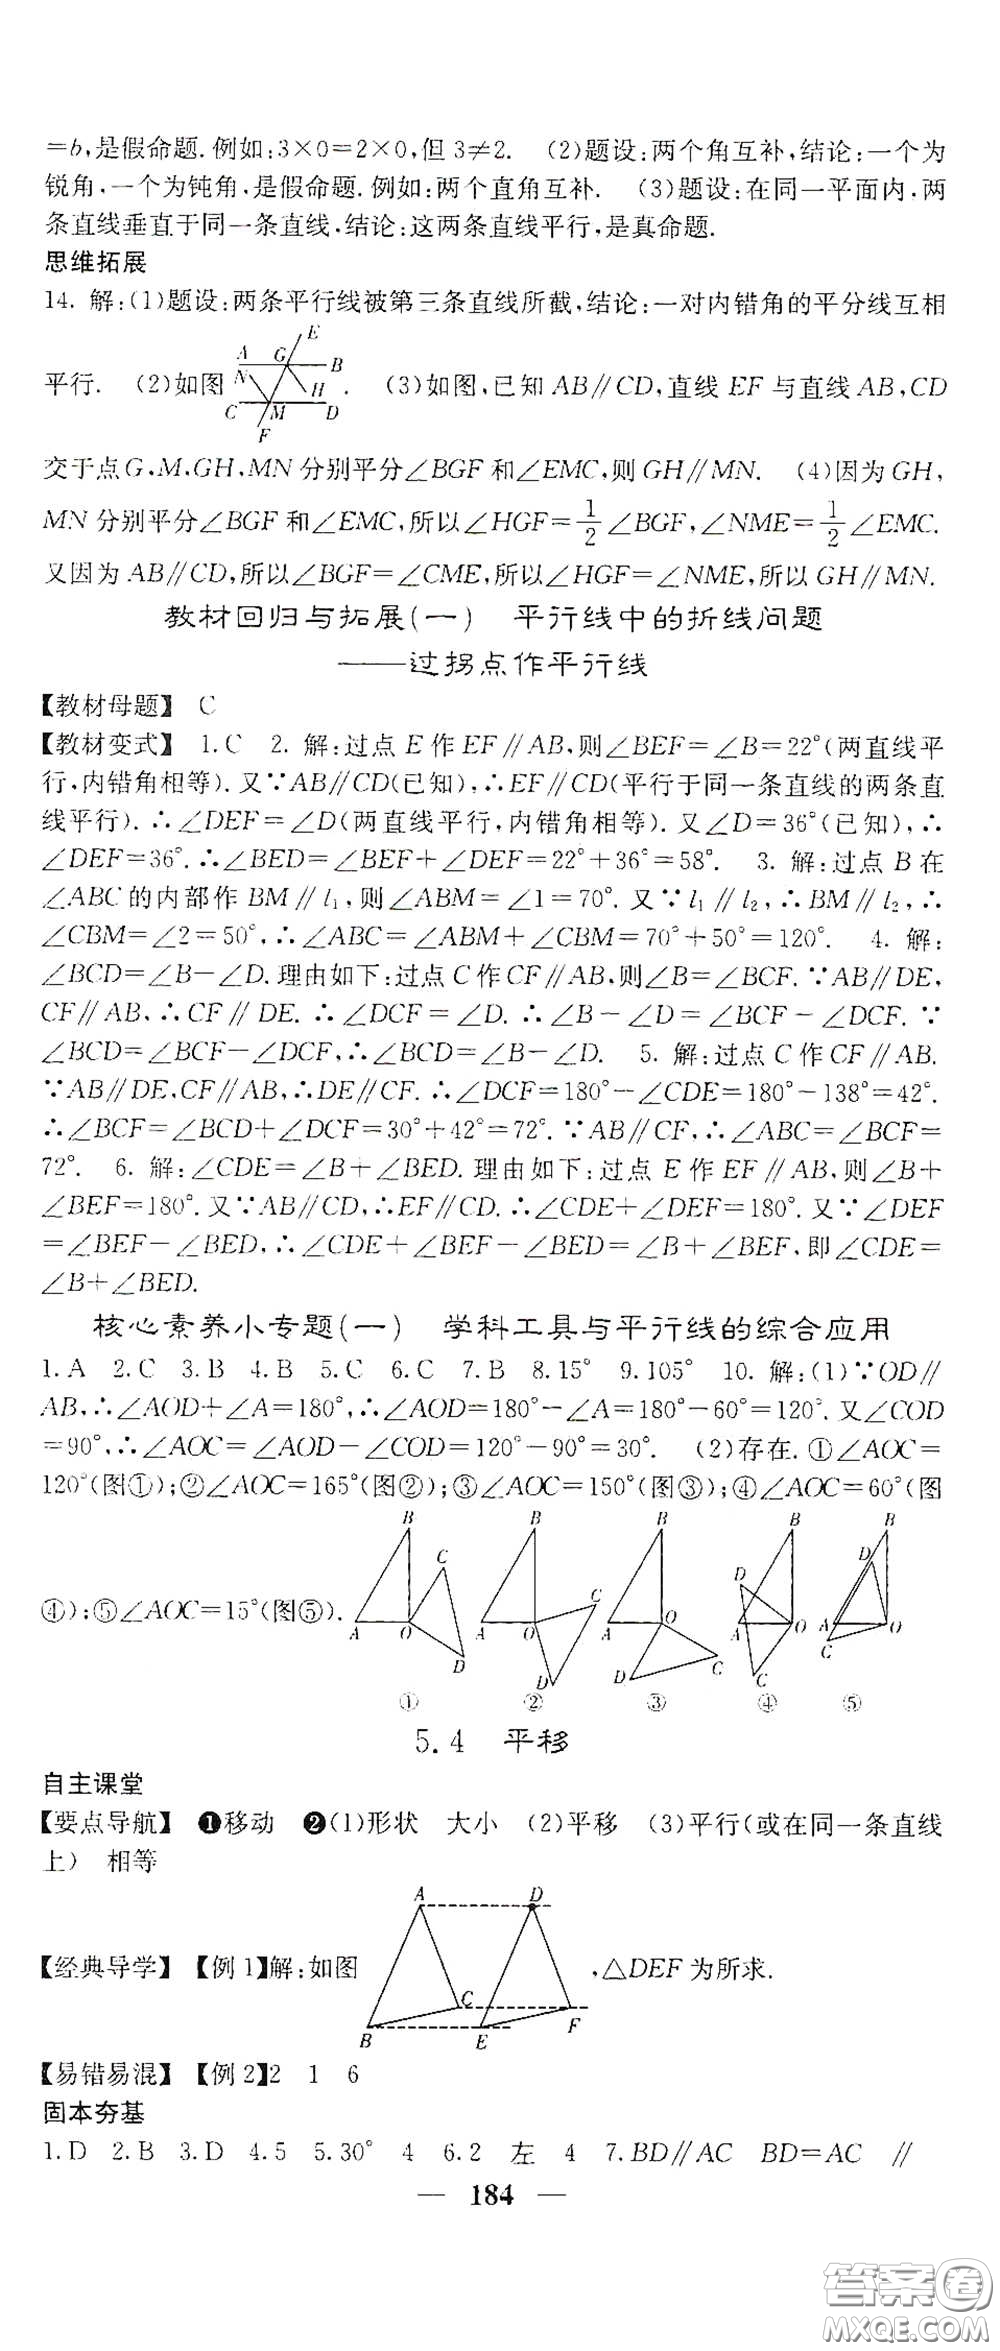 =b,是假命题.例如:3×0=2×0,但3≠2. (2)题设:两个角互补,结论:一个为
锐角,一个为钝角,是假命题.例如:两个直角互补. (3)题设:在同一平面内,两
条直线垂直于同一条直线,结论:这两条直线平行,是真命题.
思维拓展
14. 解:(1)题设:两条平行线被第三条直线所截,结论:一对内错角的平分线互相
平行. (2)如图 A G E B N H C M D F . (3)如图,已知AB∥CD,直线EF与直线AB,CD
交于点G,M,GH,MN分别平分∠BGF和∠EMC,则GH∥MN. (4)因为GH,
MN分别平分∠BGF和∠EMC,所以∠HGF=1/2∠BGF,∠NME=1/2∠EMC.
又因为AB∥CD,所以∠BGF=∠CME,所以∠HGF=∠NME,所以GH∥MN.
教材回归与拓展(一) 平行线中的折线问题
——过拐点作平行线
【教材母题】 C
【教材变式】 1.C 2. 解:过点E作EF∥AB,则∠BEF=∠B=22°(两直线平
行,内错角相等).又∵AB∥CD(已知),∴EF∥CD(平行于同一条直线的两条直
线平行).∴∠DEF=∠D(两直线平行,内错角相等).又∠D=36°(已知),∴
∠DEF=36°.∴∠BED=∠BEF+∠DEF=22°+36°=58°. 3. 解:过点B在
∠ABC的内部作BM∥l₁,则∠ABM=∠1=70°.又∵l₁∥l₂,∴BM∥l₂,∴
∠CBM=∠2=50°,∴∠ABC=∠ABM+∠CBM=70°+50°=120°. 4. 解:
∠BCD=∠B-∠D.理由如下:过点C作CF∥AB,则∠B=∠BCF.∵AB∥DE,
CF∥AB,∴CF∥DE.∴∠DCF=∠D.∴∠B-∠D=∠BCF-∠DCF.∵
∠BCD=∠BCF-∠DCF,∴∠BCD=∠B-∠D. 5. 解:过点C作CF∥AB.
∵AB∥DE,CF∥AB,∴DE∥CF.∴∠DCF=180°-∠CDE=180°-138°=42°.
∴∠BCF=∠BCD+∠DCF=30°+42°=72°.∵AB∥CF,∴∠ABC=∠BCF=
72°. 6. 解:∠CDE=∠B+∠BED.理由如下:过点E作EF∥AB,则∠B+
∠BEF=180°.又∵AB∥CD,∴EF∥CD.∴∠CDE+∠DEF=180°.又∵∠DEF
=∠BEF-∠BED,∴∠CDE+∠BEF-∠BED=∠B+∠BEF,即∠CDE=
∠B+∠BED.
核心素养小专题(一) 学科工具与平行线的综合应用
1.A 2.C 3.B 4.B 5.C 6.C 7.B 8.15° 9.105° 10. 解:(1)∵OD∥
AB,∴∠AOD+∠A=180°,∴∠AOD=180°-∠A=180°-60°=120°.又∠COD
=90°,∴∠AOC=∠AOD-∠COD=120°-90°=30°. (2)存在.①∠AOC=
120°(图①);②∠AOC=165°(图②);③∠AOC=150°(图③);④∠AOC=60°(图
④);⑤∠AOC=15°(图⑤). B C A O D B C A O D B A O D C B D A O C B D A O C
① ② ③ ④ ⑤
5.4 平移
自主课堂
【要点导航】 ❶移动 ❷(1)形状 大小 (2)平移 (3)平行(或在同一条直线
上) 相等
【经典导学】 【例1】解:如图 A D C B E F ,△DEF为所求.
【易错易混】 【例2】2 1 6
固本夯基
1.D 2.B 3.D 4.5 5.30° 4 6.2 左 4 7.BD∥AC BD=AC ∥
— 184 —
答案圈
MXQE.COM